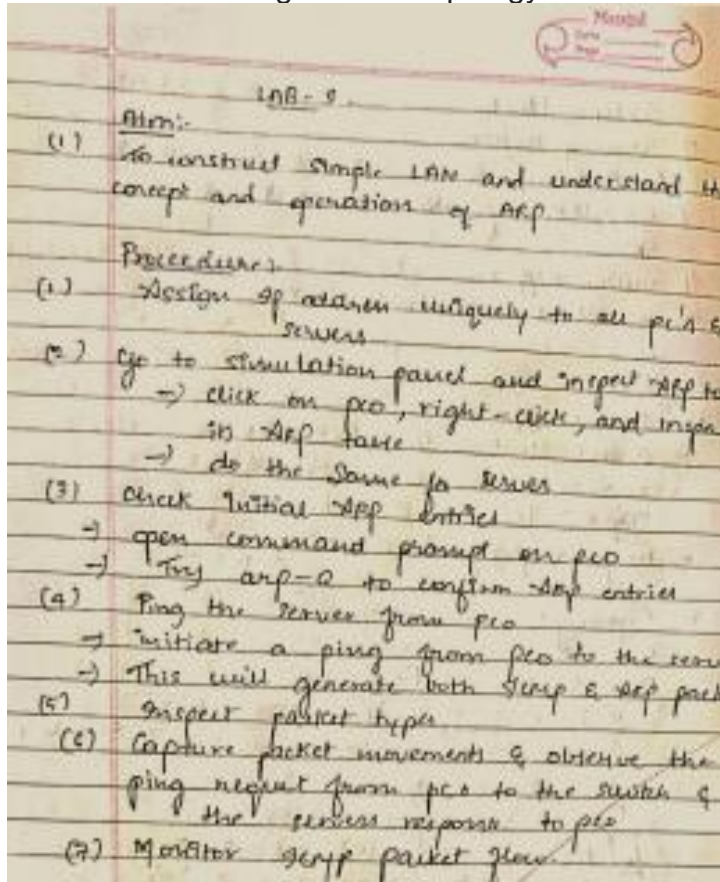 LAB - 9.
Aim:-
(1) To construct simple LAN and understand th
concept and operation of ARP
Procedure:
(1) Assign IP address uniquely to all pc's &
servers
(2) Go to simulation panel and inspect ARP ta
→ click on pc0, right-click, and inspe
in ARP table
→ do the same for server
(3) check initial ARP entries
→ open command prompt on pc0
→ Try arp-a to confirm Arp entries
(4) Ping the server from pc0
→ initiate a ping from pc0 to the serv
→ This will generate both Icmp & Arp pack
(5) Inspect packet types
(6) Capture packet movements & observe the
ping request from pc0 to the switch &
the servers response to pc0
(7) Monitor Icmp packet flow.